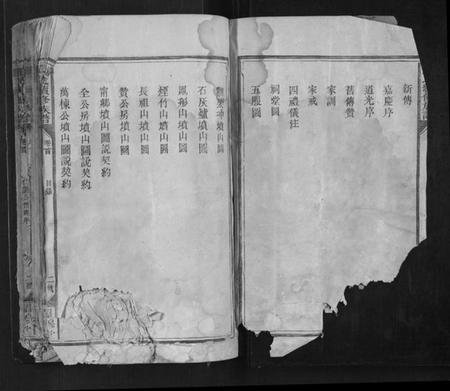 新傳
嘉慶序
道光序
舊傳贊
家訓
家戒
四禮儀注
祠堂圖
五服圖
墳山圖
石灰爐墳山圖
鳳形山墳山圖
煙竹山墳山圖
長祖山墳山圖
贊公房墳山圖
甯鄉墳山圖說契約
全公房墳山圖說契約
萬棟公墳山圖說契約
卷首
目錄